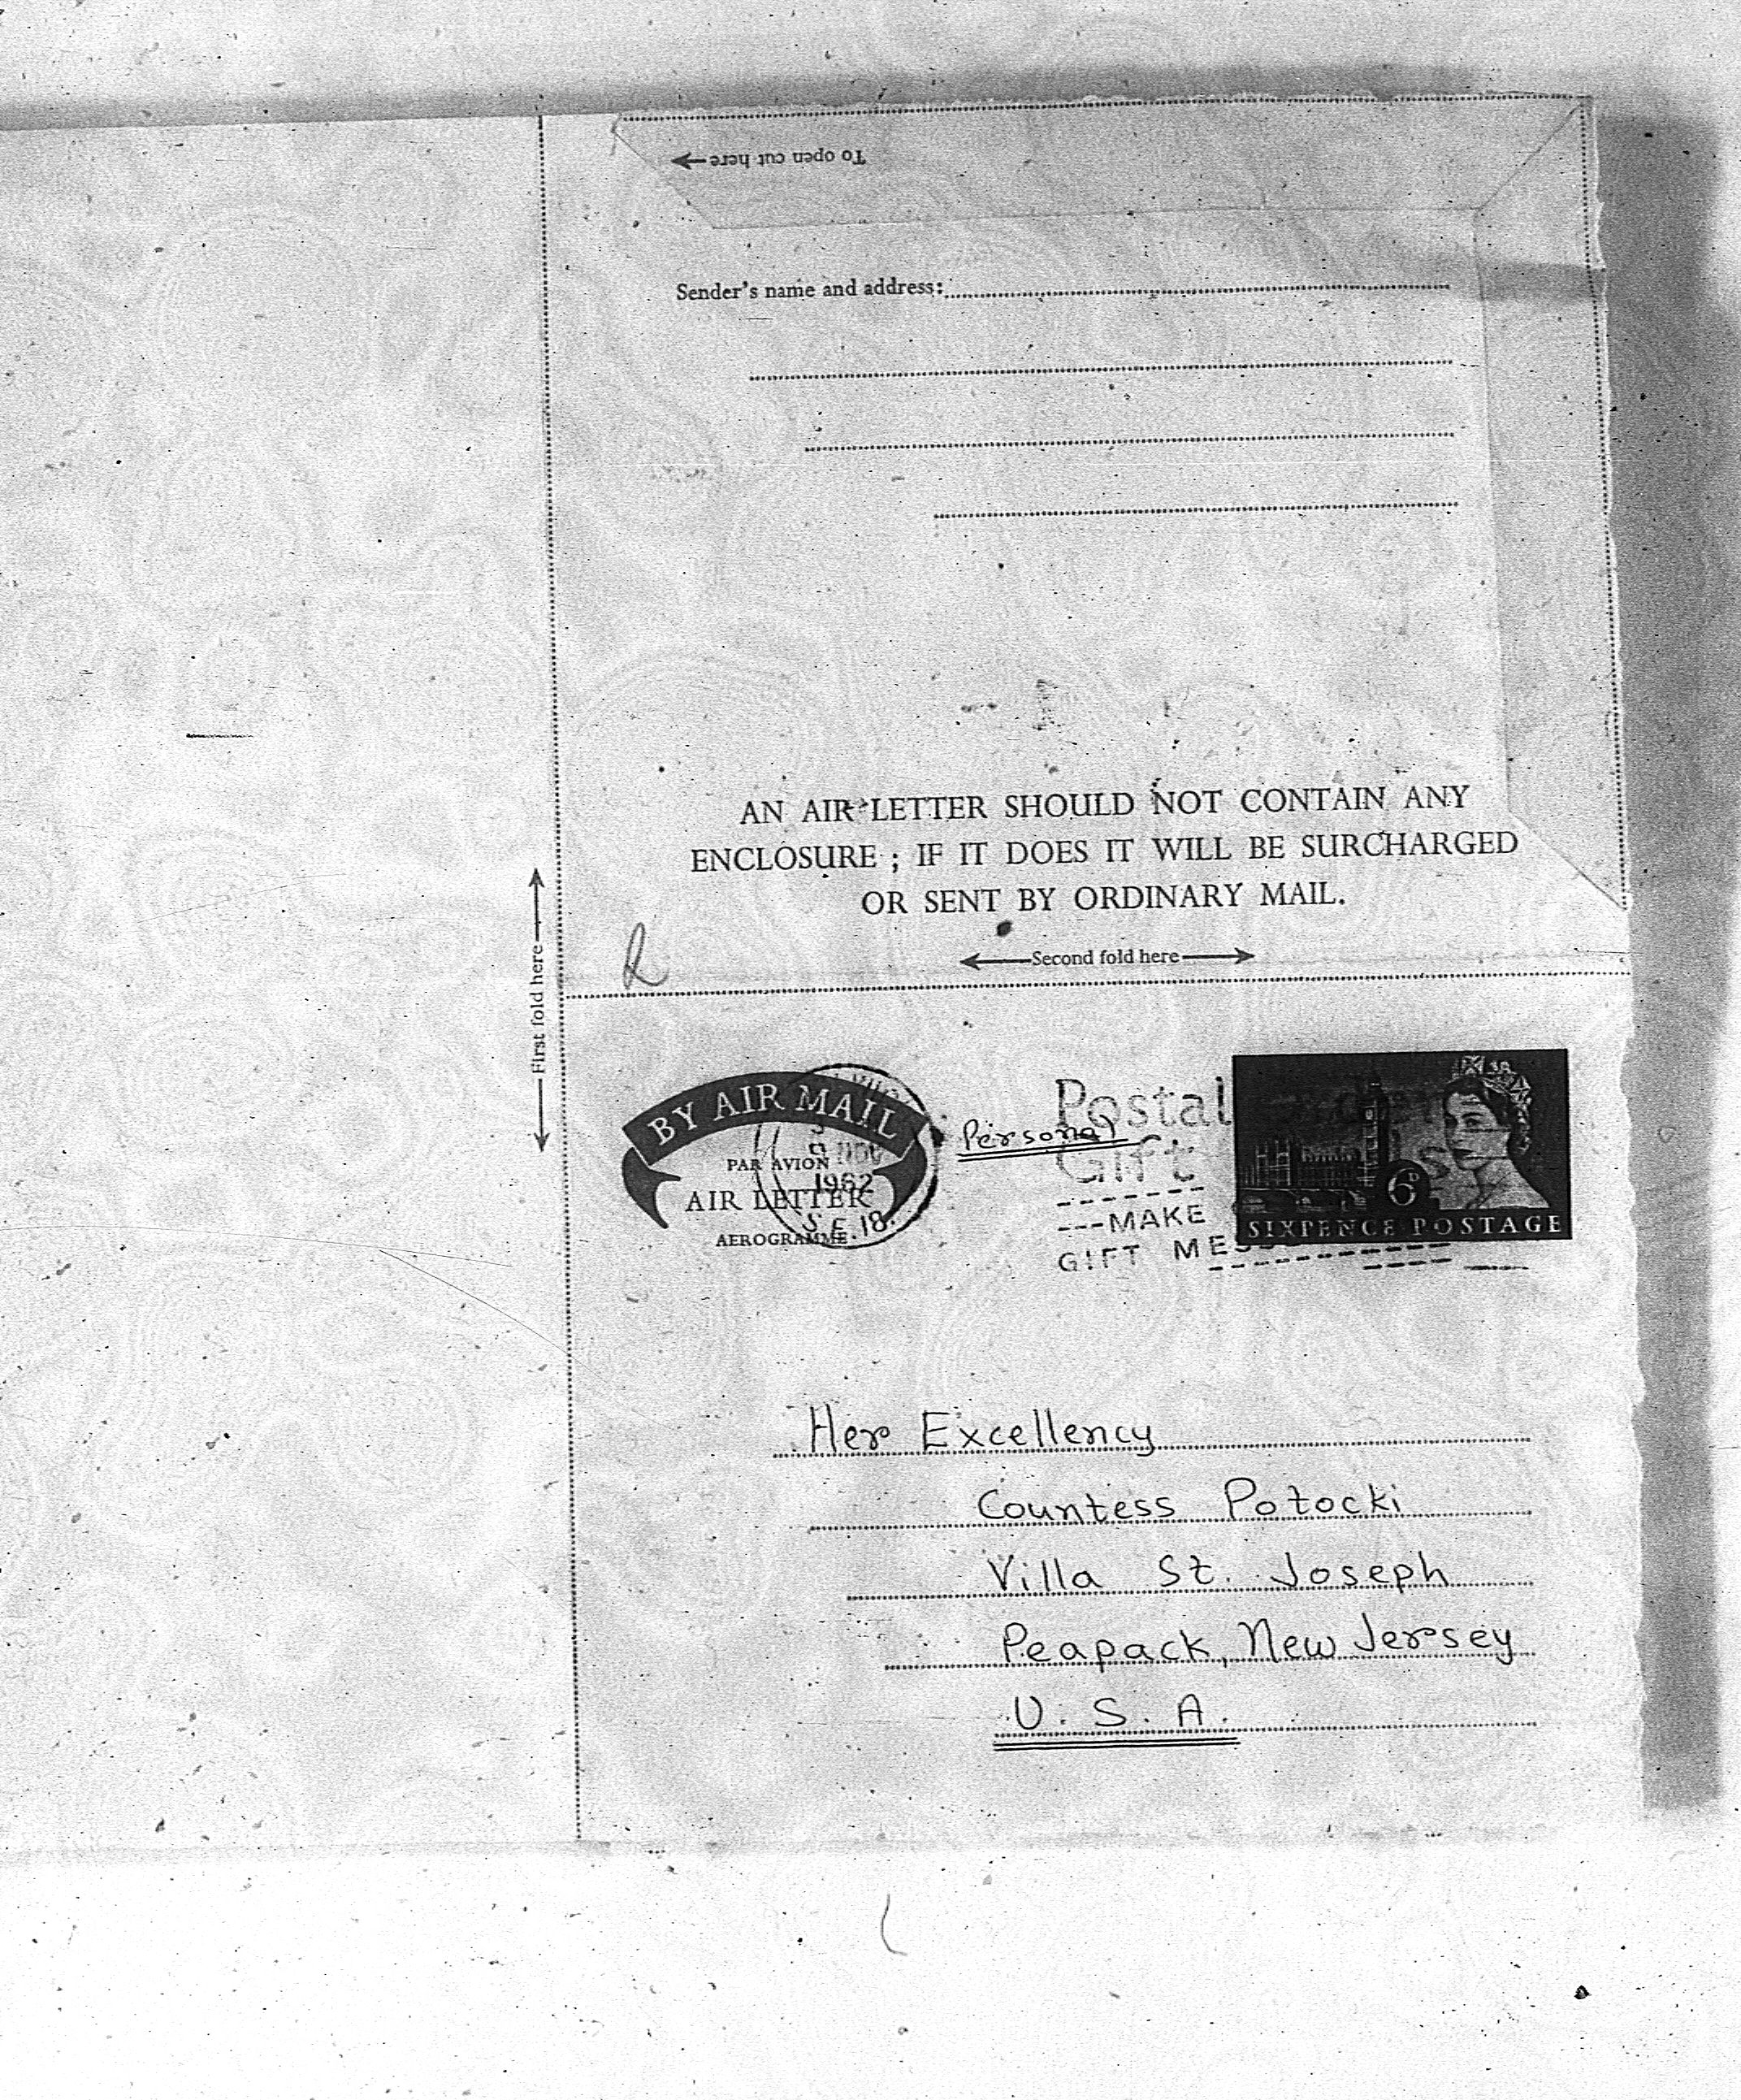 To open cut here
Sender's name and address:
AN AIR LETTER SHOULD NOT CONTAIN ANY
ENCLOSURE ; IF IT DOES IT WILL BE SURCHARGED
OR SENT BY ORDINARY MAIL.
First fold here
Second fold here
BY AIR MAIL
PAR AVION
AIR LETTER
AEROGRAMME
1962
S.E.18.
Personal
Postal
Gift
MAKE
GIFT
6D
SIXPENCE POSTAGE
Her Excellency
Countess Potocki
Villa St. Joseph
Peapack, New Jersey
U. S. A.